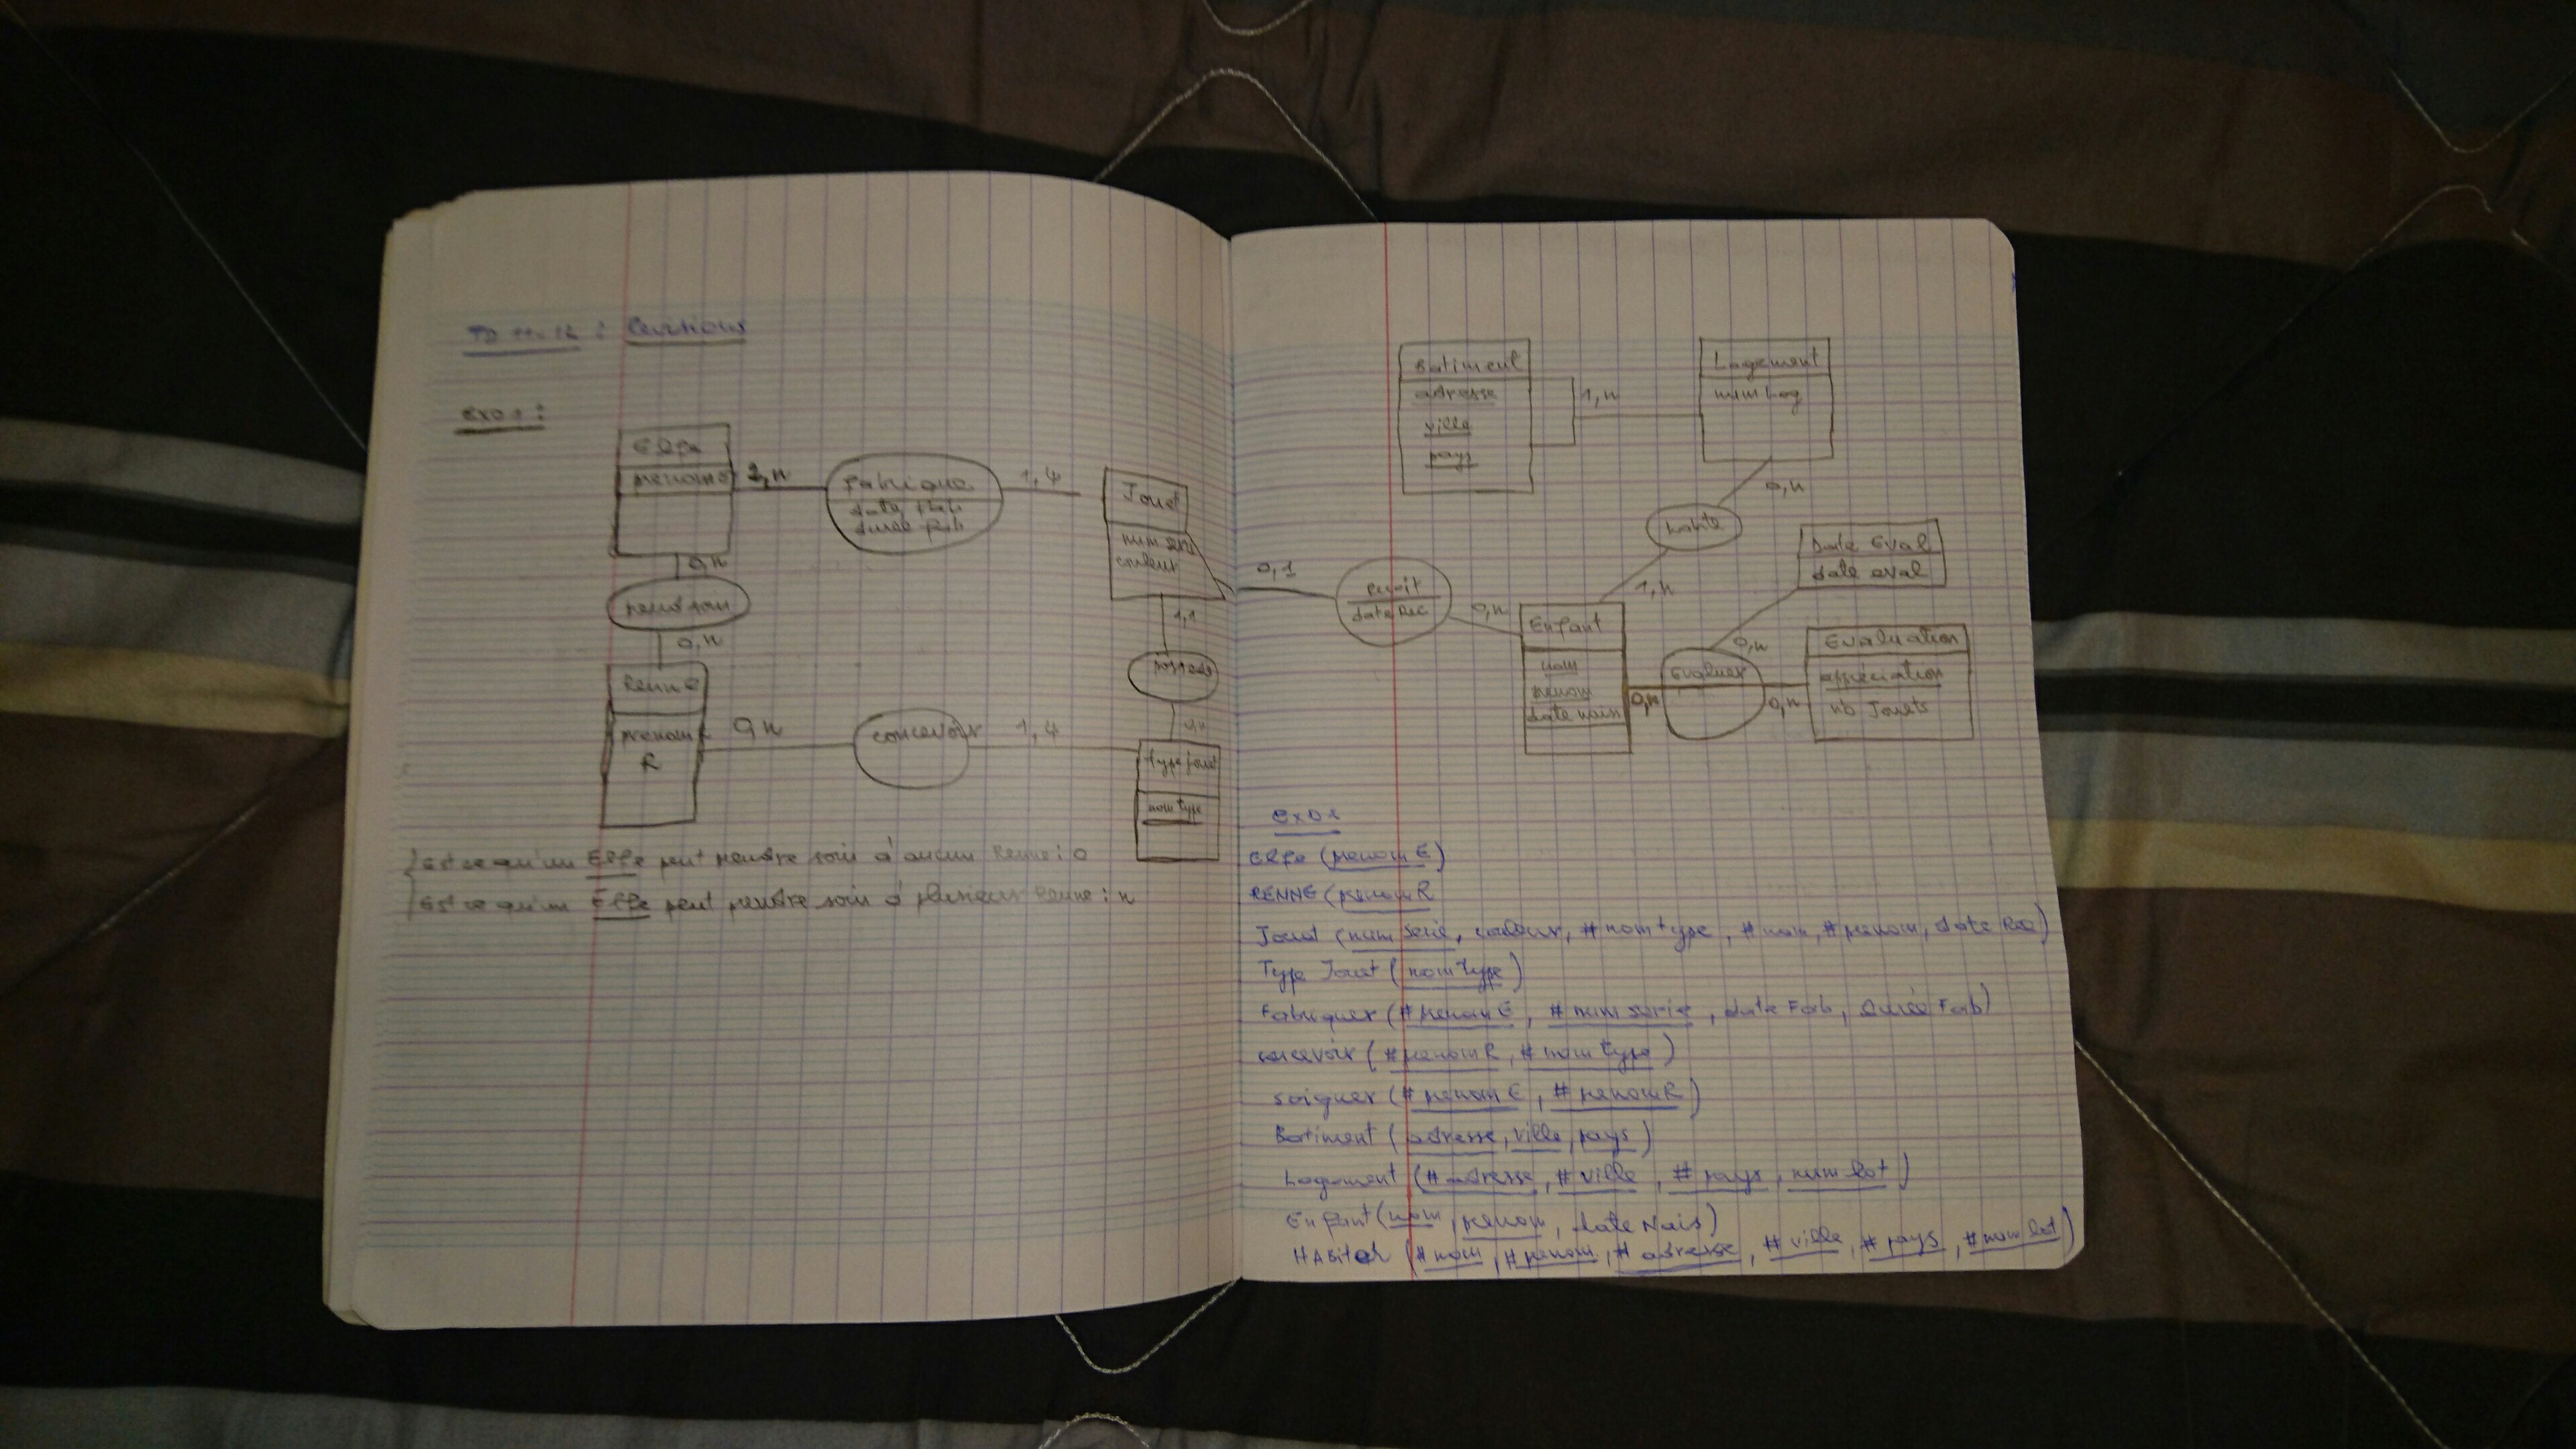 TD 11-12 : Revisions
exo 1 :
Elfe
prenom E
1,n
Fabrique
date Fab
duree Fab
1,4
Jouet
num serie
couleur
0,n
prend soin
0,n
Renne
prenom
R
0,n
concevoir
1,4
1,1
possede
0,n
type jouet
nom type
Est ce qu'un Elfe peut prendre soin d'aucun Renne : 0
Est ce qu'un Elfe peut prendre soin d plusieurs Renne : n
0,1
reçoit
date Rec
0,n
Batiment
adresse
ville
pays
1,n
Logement
num Log
0,n
habite
1,n
Enfant
nom
prenom
date nais
0,n
Evaluer
0,n
0,n
Date Eval
date eval
Evaluation
appréciation
nb Jouets
exo 1
Elfe (prenom E)
RENNE (prenom R
Jouet (num serie, couleur, # nom type, # nom, # prenom, date Rec)
Type Jouet (nom Type)
Fabriquer (# prenom E, # num serie, date Fab, durée Fab)
concevoir (# prenom R, # nom type)
soigner (# prenom E, # prenom R)
Batiment (adresse, ville, pays)
Logement (# adresse, # ville, # pays, num lot)
Enfant (nom, prenom, date Nais)
HABiteR (# nom, # prenom, # adresse, # ville, # pays, # num lot)